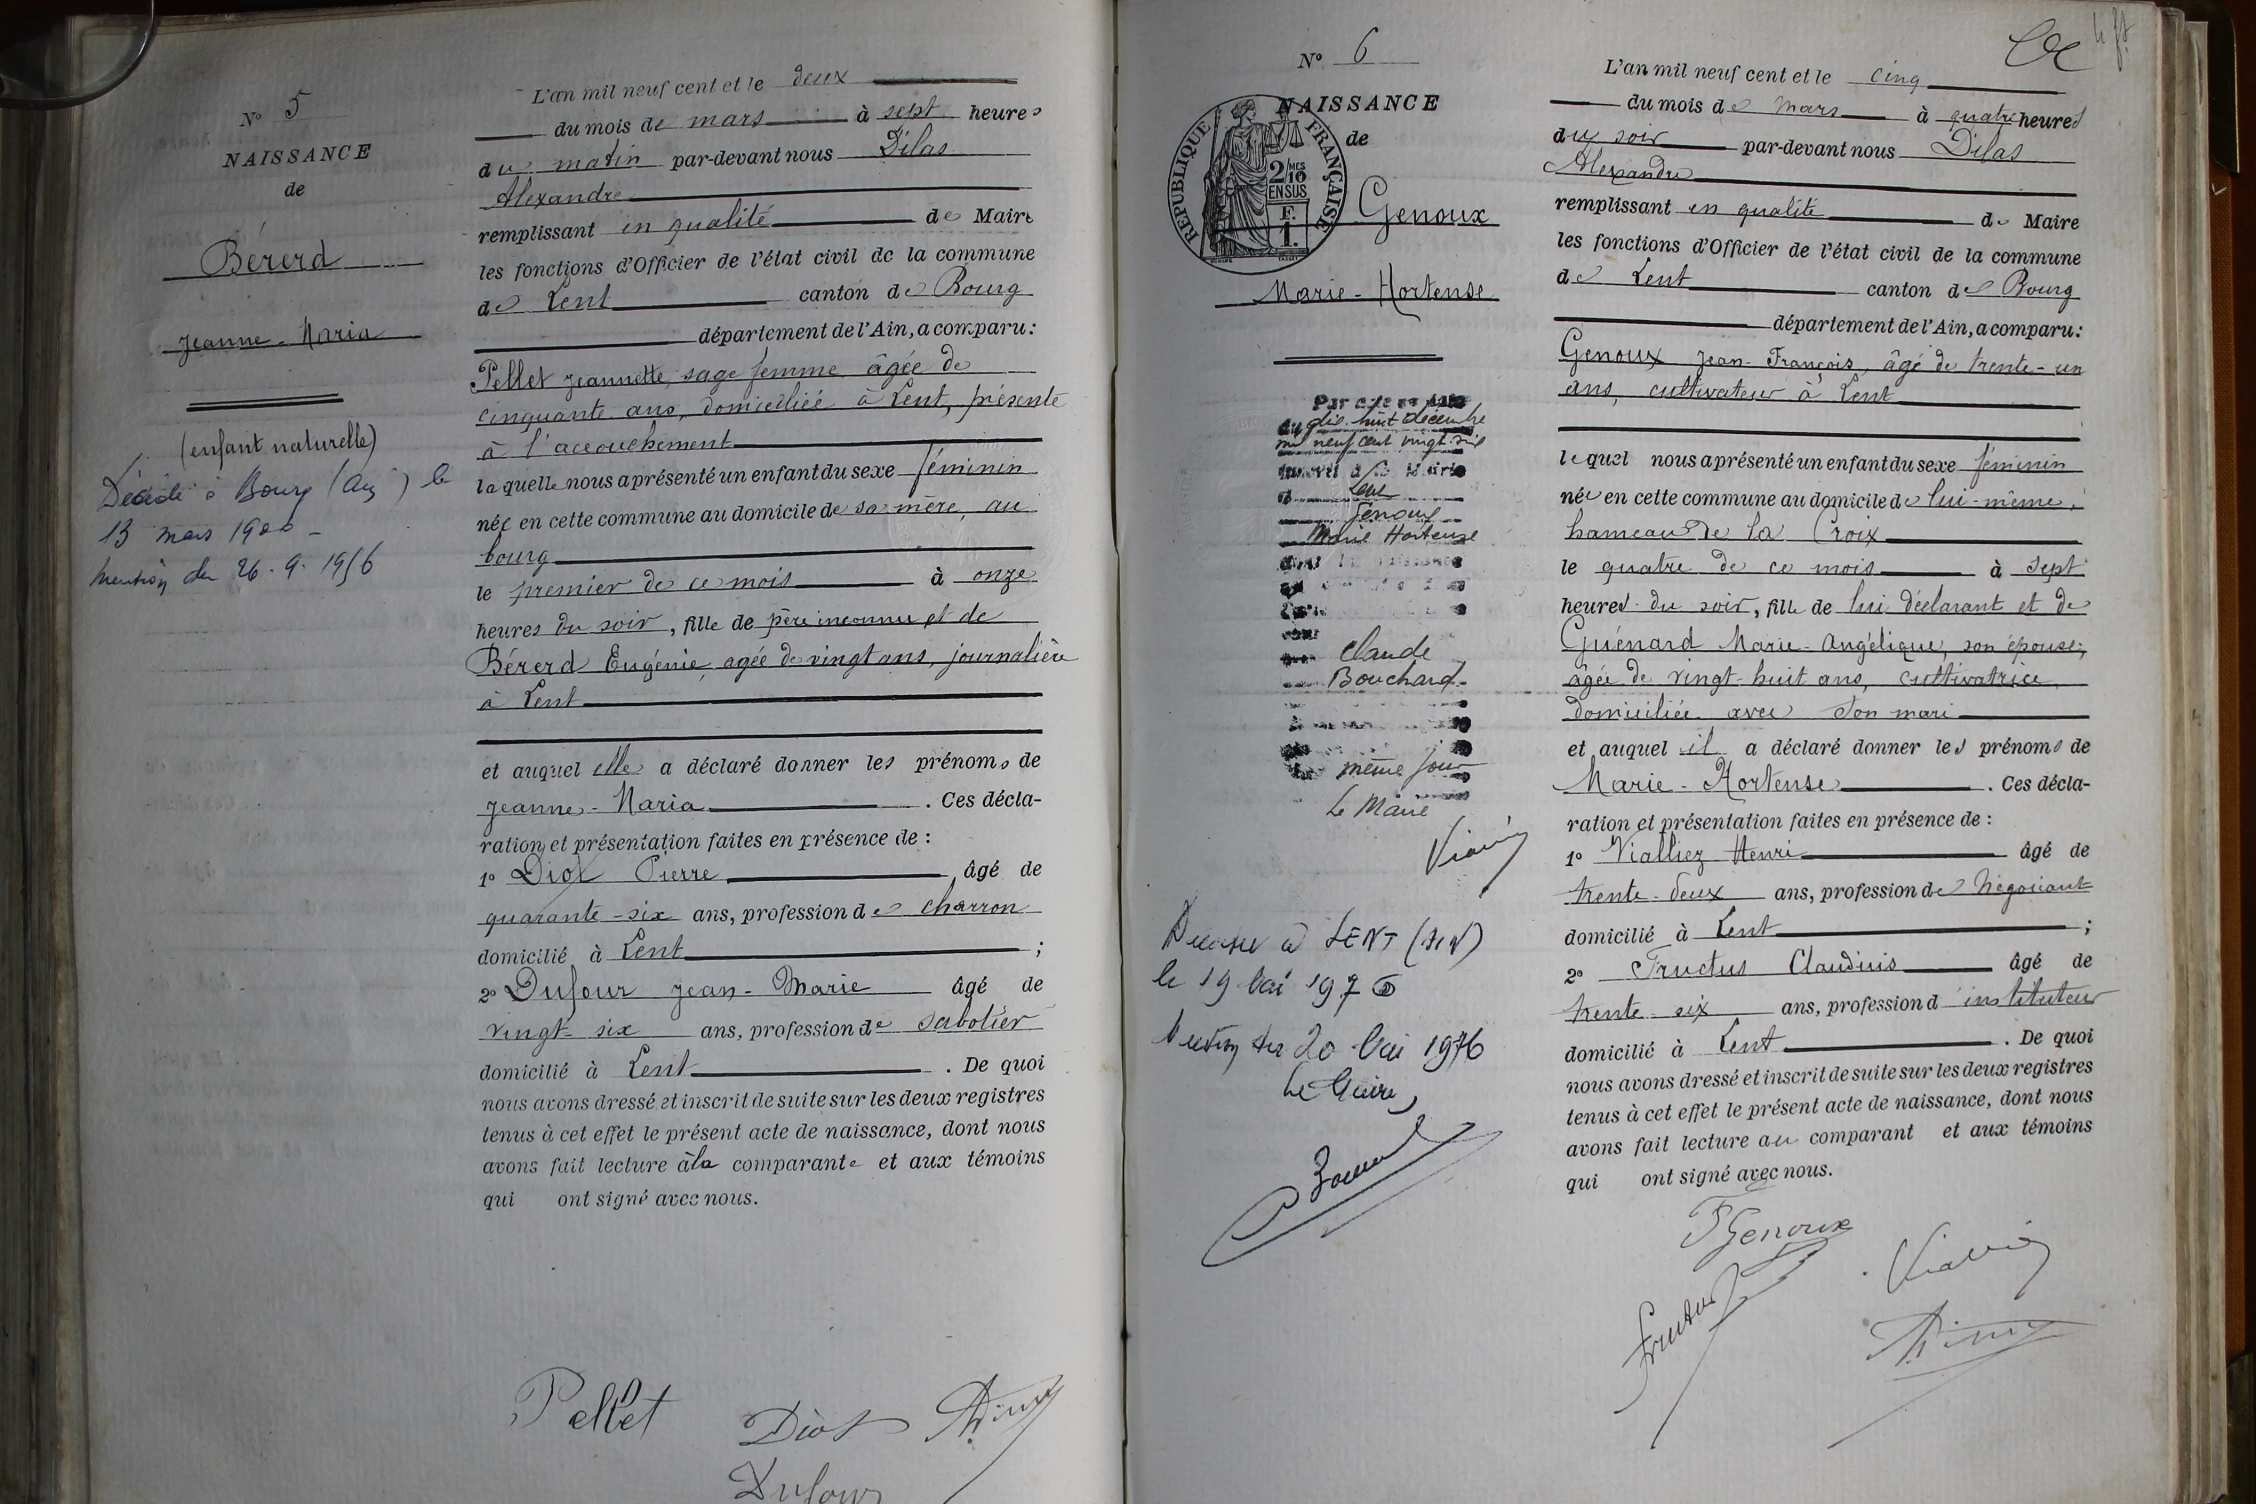 N° 5
NAISSANCE
de
Bérerd
Jeanne-Maria
(enfant naturelle)
Décédée à Bourg (Ain) le
13 mars 1900 -
Mention du 26.9.1956
L'an mil neuf cent et le deux
du mois de mars à sept heures
du matin par-devant nous Dilas
Alexandre
remplissant en qualité de Maire
les fonctions d'Officier de l'état civil de la commune
de Lent canton de Bourg
département de l'Ain, a comparu:
Pellet Jeannette, sage femme âgée de
cinquante ans, domiciliée à Lent, présente
à l'accouchement
laquelle nous a présenté un enfant du sexe féminin
née en cette commune au domicile de sa mère, au
bourg
le premier de ce mois à onze
heures du soir, fille de père inconnu et de
Bérerd Eugénie, agée de vingt ans, journalière
à Lent
et auquel elle a déclaré donner les prénoms de
Jeanne-Maria. Ces décla-
ration et présentation faites en présence de :
1° Diot Pierre âgé de
quarante-six ans, profession de charron
domicilié à Lent ;
2° Dufour Jean-Marie âgé de
vingt-six ans, profession de sabotier
domicilié à Lent. De quoi
nous avons dressé et inscrit de suite sur les deux registres
tenus à cet effet le présent acte de naissance, dont nous
avons fait lecture à la comparante et aux témoins
qui ont signé avec nous.
Pellet
Diot
Dufour
4 ft
N° 6
NAISSANCE
de
RÉPUBLIQUE FRANÇAISE
2/10MES
EN SUS
F.
1.
Genoux
Marie-Hortense
Par acte en date
du dix-huit décembre
mil neuf cent vingt-six
Mairie
Lent
Genoux
Marie Hortense
Claude
Bouchard
même jour
Le Maire
Décédée à LENT (AIN)
le 19 Mai 1976
Mention du 20 Mai 1976
Le Maire,
L'an mil neuf cent et le cinq
du mois de mars à quatre heures
du soir par-devant nous Dilas
Alexandre
remplissant en qualité de Maire
les fonctions d'Officier de l'état civil de la commune
de Lent canton de Bourg
département de l'Ain, a comparu:
Genoux Jean-François, âgé de trente-un
ans, cultivateur à Lent
lequel nous a présenté un enfant du sexe féminin
née en cette commune au domicile de lui-même,
hameau de la Croix
le quatre de ce mois à sept
heures du soir, fille de lui déclarant et de
Guénard Marie-Angélique, son épouse,
âgée de vingt-huit ans, cultivatrice
domiciliée avec son mari
et auquel il a déclaré donner les prénoms de
Marie-Hortense. Ces décla-
ration et présentation faites en présence de :
1° Vialliez Henri âgé de
trente-deux ans, profession de Négociant
domicilié à Lent ;
2° Fructus Claudius âgé de
trente-six ans, profession d'instituteur
domicilié à Lent. De quoi
nous avons dressé et inscrit de suite sur les deux registres
tenus à cet effet le présent acte de naissance, dont nous
avons fait lecture au comparant et aux témoins
qui ont signé avec nous.
F Genoux
Fructus